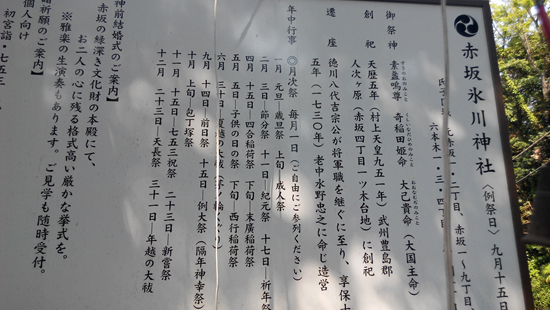 赤坂氷川神社
〈例祭日〉九月十五日
赤坂一〜九丁目
六本木一・二・四丁目
御祭神 素盞嗚尊 奇稲田姫命 大己貴命(大国主命)
すさのおのみこと くしいなだひめのみこと おおなむぢのみこと
創祀 天暦五年(村上天皇九五一年)武州豊島郡
人次ヶ原(赤坂四丁目一ツ木台地)に創祀
遷座 徳川八代吉宗公が将軍職を継ぐに至り、享保十
五年(一七三〇年)老中水野忠之に命じ造営
年中行事 ◎月次祭 毎月一日(ご自由にご参列ください)
一月 元旦―歳旦祭 上旬―成人祭
二月 三日―節分祭 十一日―紀元祭 十七日―祈年祭
四月 十五日―四合稲荷祭 下旬―末廣稲荷祭
五月 五日―子供の日の祭 下旬―西行稲荷祭
六月 三十日―夏越の大祓(茅ノ輪くぐり)
九月 十四日―前日祭 十五日―例大祭(隔年神幸祭)
十月 上旬―包丁塚祭
十一月 十五日―七五三祝祭 二十三日―新嘗祭
十二月 二十三日―天長祭 三十一日―年越の大祓
神前結婚式のご案内】
赤坂の緑深き文化財の本殿にて、
お二人の心に残る格式高い厳かな挙式を。
※雅楽の生演奏もあります。ご見学も随時受付。
諸祈願のご案内】
個人向け
初宮詣・七五三